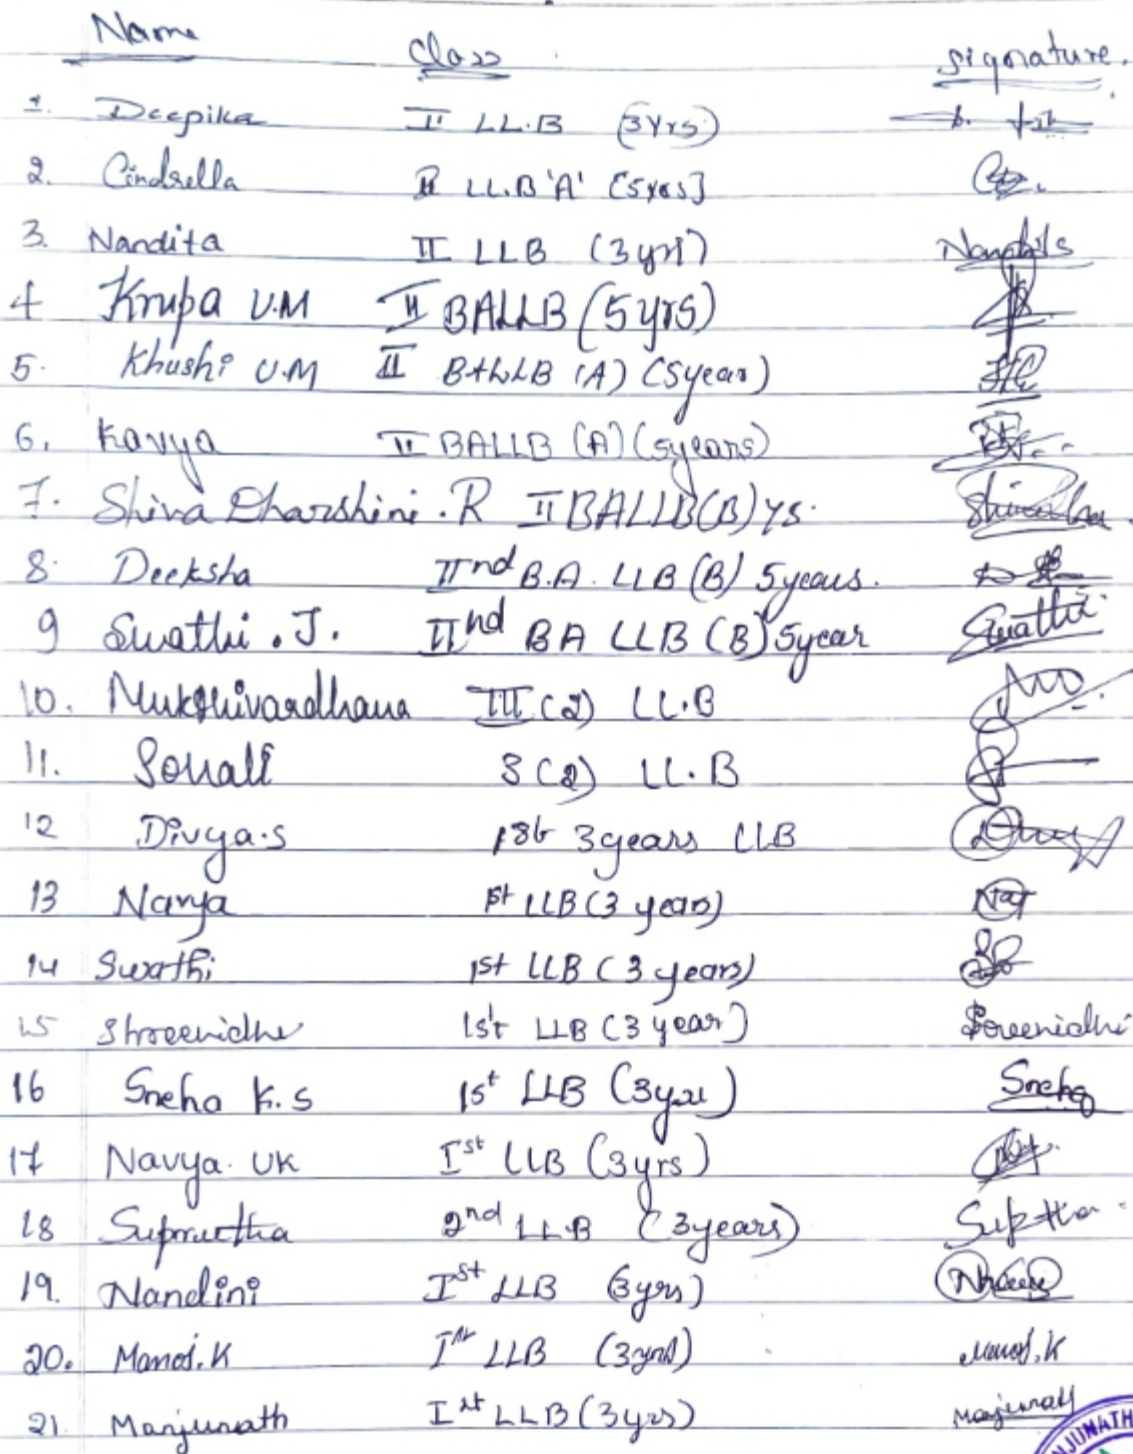 Name Class Signature.
1. Deepika II LL.B (3Yrs)
2. Cindrella II LL.B 'A' [5yrs]
3. Nandita II LLB (3yrs)
4 Krupa U.M II BALLB (5yrs)
5. Khushi U.M II BALLB (A) (5year)
6. Kavya II BALLB (A) (5years)
7. Shiva Dharshini.R II BALLB(B) ys.
8. Deeksha IInd B.A. LLB (B) 5years.
9 Swathi.J. IInd BA LLB (B) 5year Swathi
10. Mukthivardhana III (2) LL.B
11. Sonali 3 (2) LL.B
12 Divya.S 1st 3years LLB
13 Navya 1st LLB (3 years)
14 Swathi 1st LLB (3 years)
15 Shreenidhi 1st LLB (3 year) Sreenidhi
16 Sneha K.S 1st LLB (3yrs) Sneha
17 Navya. UK Ist LLB (3yrs)
18 Suprutha 2nd LLB (3years)
19. Nandini Ist LLB (3yrs)
20. Manoj.K Ist LLB (3yrs) Manoj.K
21. Manjunath Ist LLB (3yrs) Manjunath